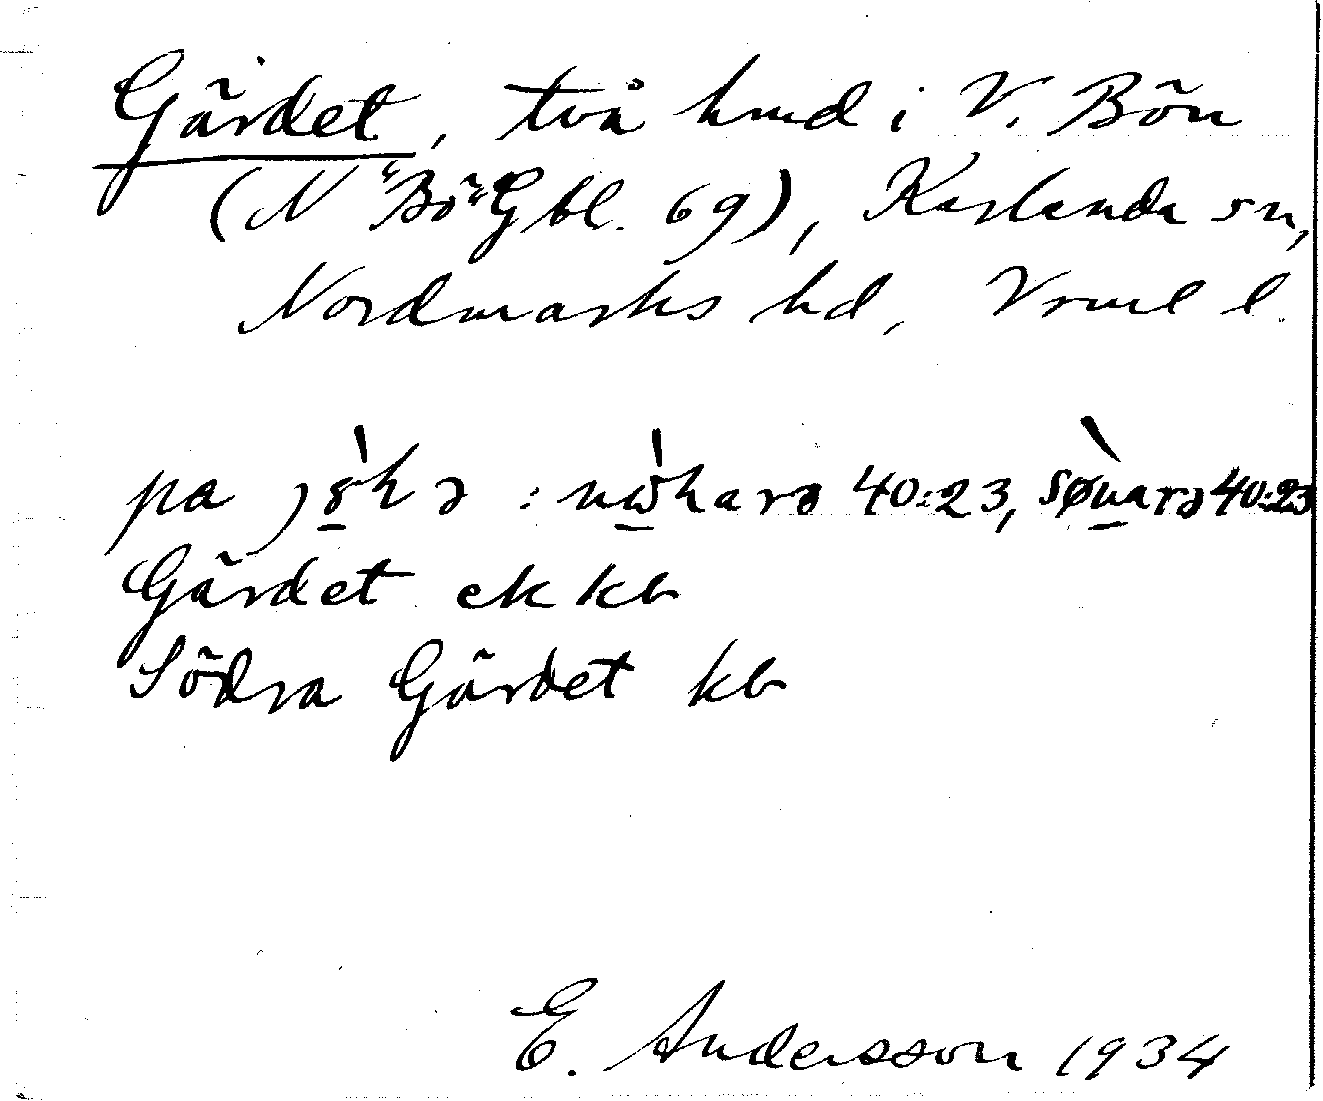 Gärdet, två hmd i V. Bön
(N "Bö" Gbl. 69), Karlanda sn,
Nordmarks hd, Vrml l.
pa 40:23, 40:23
Gärdet ek kb
Södra Gärdet kb
E. Andersson 1934